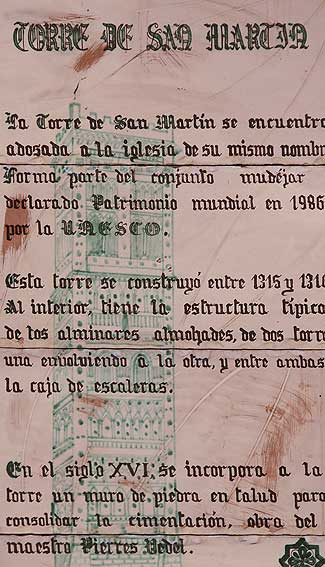 TORRE DE SAN MARTIN
La Torre de San Martín se encuentra
adosada a la iglesia de su mismo nombre
Forma parte del conjunto mudéjar
declarado Patrimonio mundial en 1986
por la UNESCO.
Esta torre se construyó entre 1315 y 1316
Al interior, tiene la estructura típica
de los alminares almohades, de dos torres
una envolviendo a la otra, y entre ambas
la caja de escaleras.
En el siglo XVI, se incorpora a la
torre un muro de piedra en talud para
consolidar la cimentación, obra del
maestro Pierres Vedel.